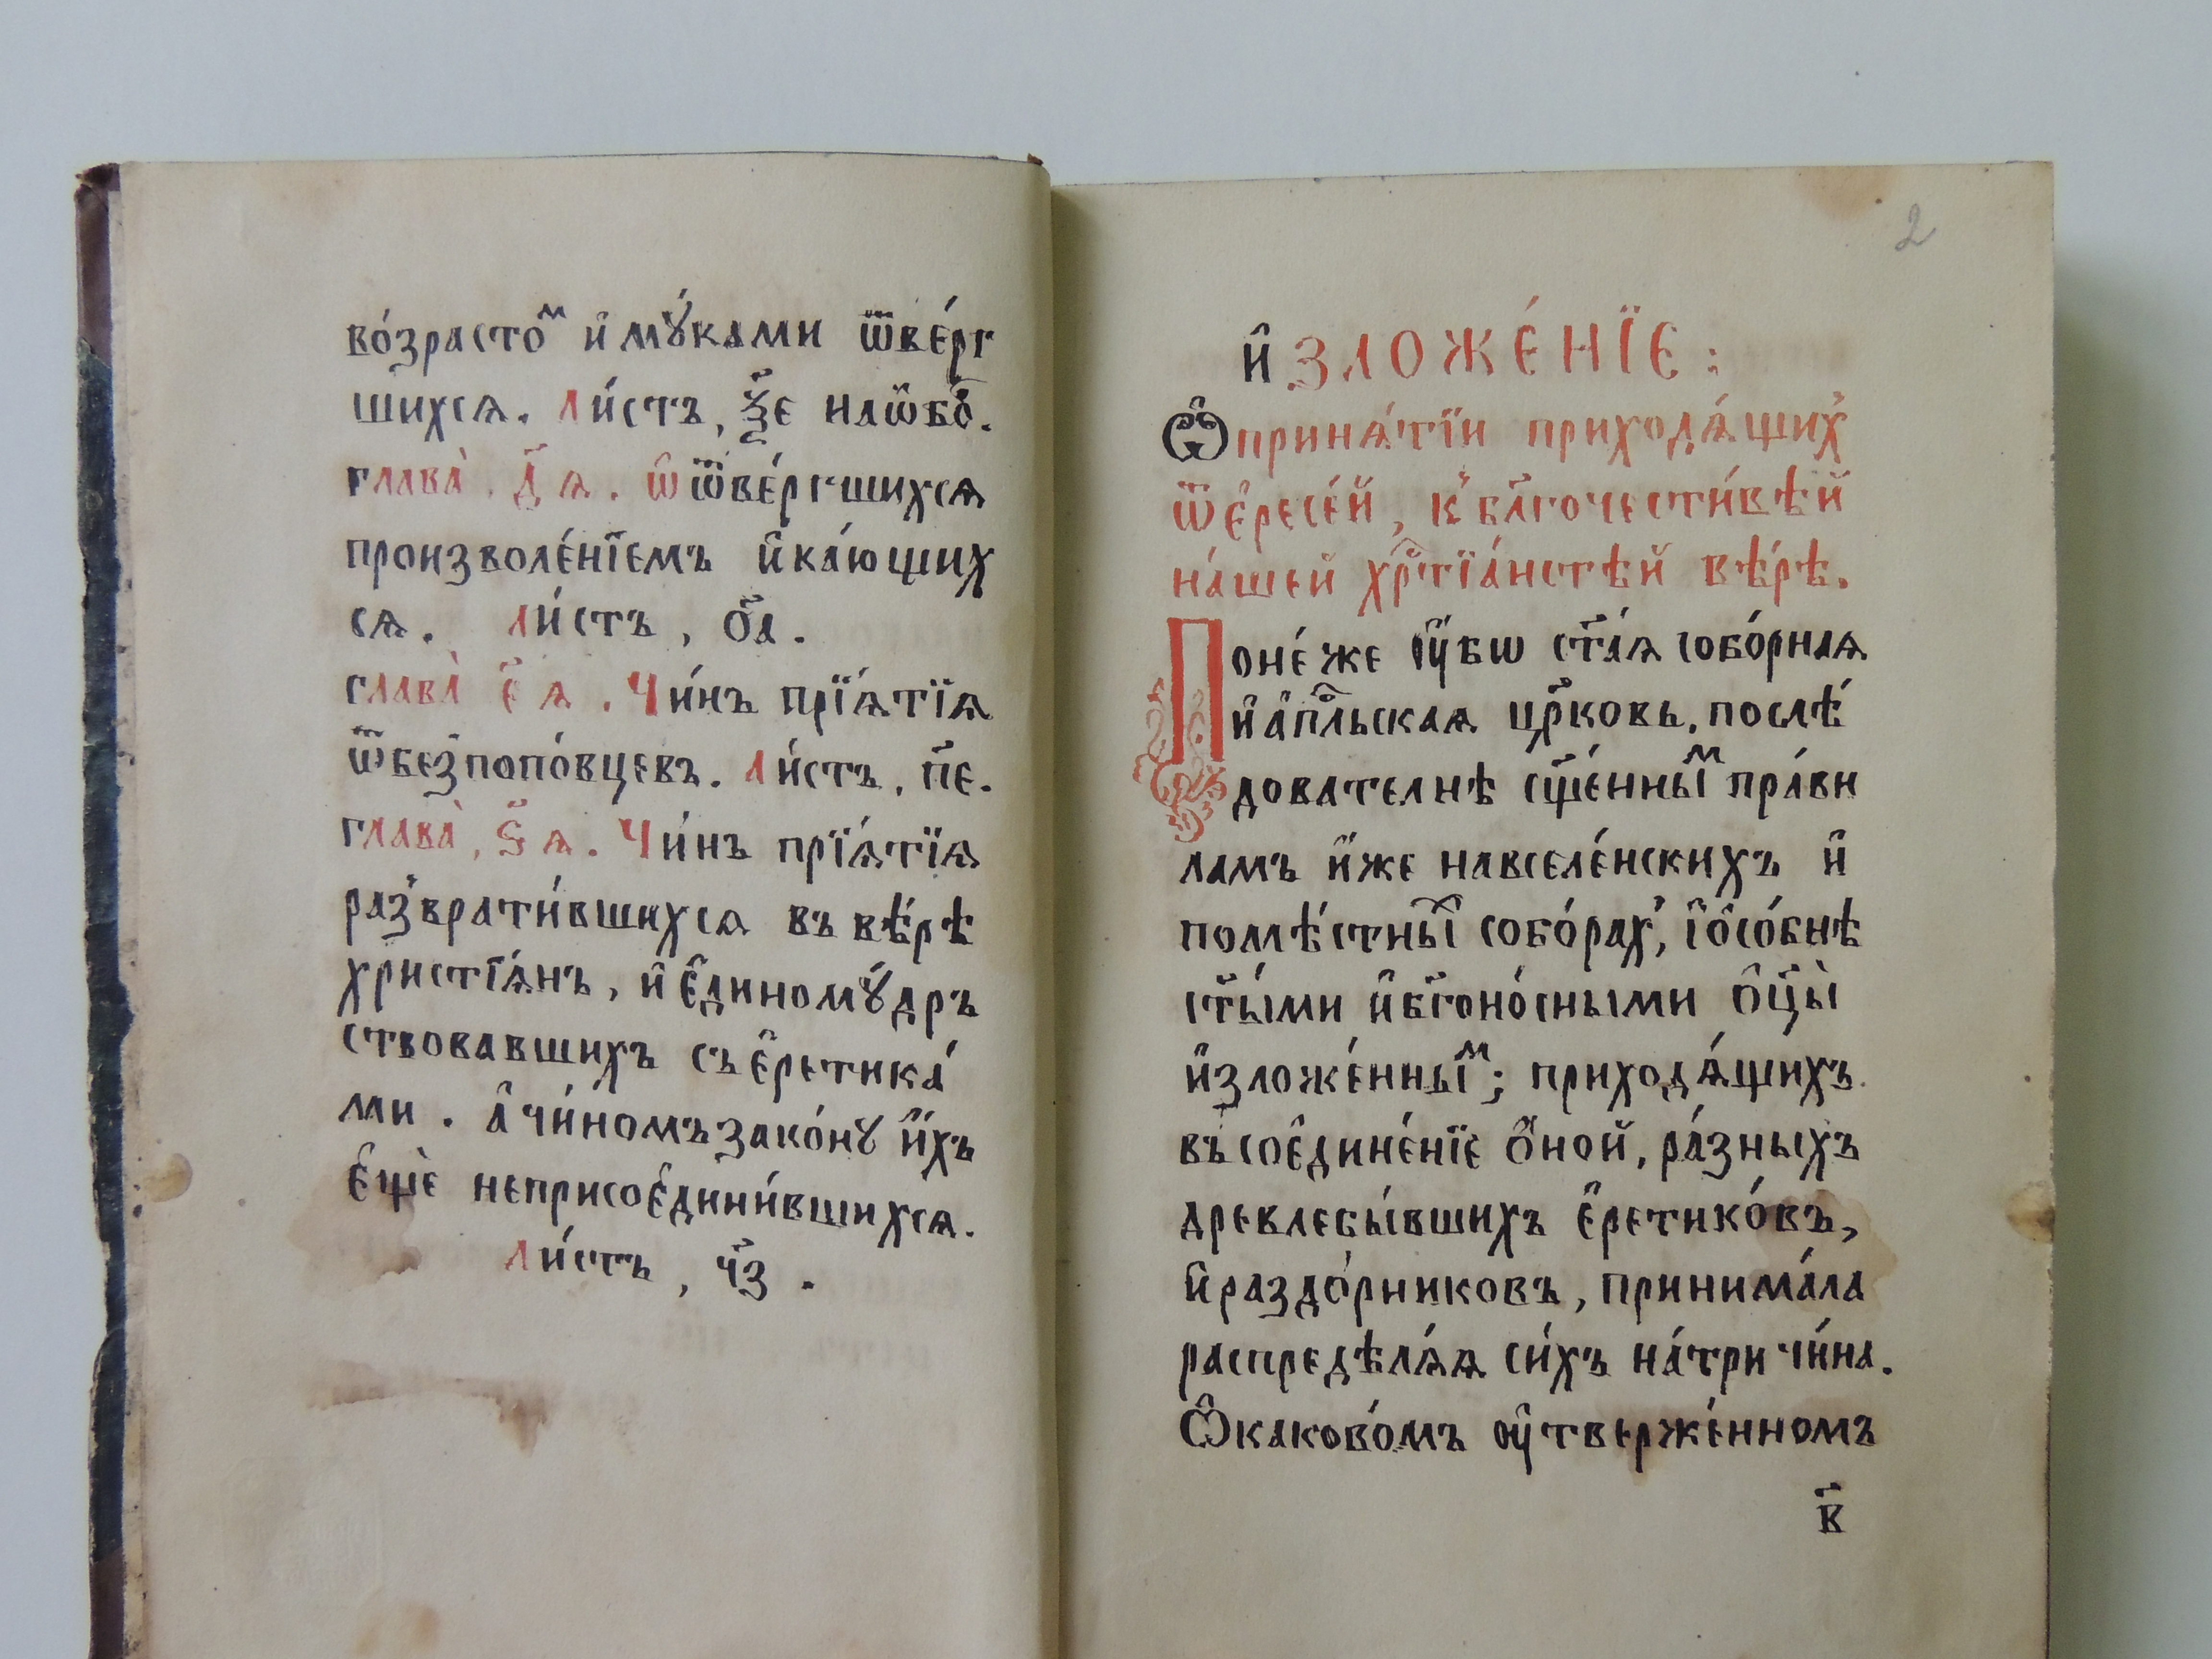 во́зрасто́ⷨ и҆ мꙋ́ками ѿве́рг
шихсѧ. Ли́стъ, ѯ҃е наѡ҆бо҃.
глава̀. д҃ѧ. ѡ҆ ѿве́ргшихсѧ
произволе́нїемъ и҆ка́ющих
сѧ. ли́стъ, о҃а.
глава̀ є҃ѧ. Чи́нъ прїѧ́тїѧ
ѿбезпопо́вцевъ. Ли́стъ, п҃є.
глава̀, ѕ҃ѧ. Чи́нъ прїѧ́тїѧ
раз̾врати́вшихсѧ въ вѣ́рѣ
христїѧ́нъ, и҆ є҆диномꙋ́дръ
ствовавшихъ съ є҆ретика́
ми. а҆ чи́номъ зако́нꙋ и҆́хъ
є҆щѐ неприсоє҆дини́вшихсѧ.
Ли́стъ, ч҃з.
2
и҆зложе́нїе:
Ѡ҆ принѧ́тїи приходѧ́щих̾
ѿ є҆ресе́й, к̾ бл҃гочести́вѣй
на́шей хрⷭ҇тїа́нстѣй вѣ́рѣ.
Поне́же ᲂу҆́бѡ ст҃а́ѧ собо́рнаѧ
и҆ а҆пⷭ҇льскаѧ цр҃ковь, послѣ́
дователнѣ сщ҃е́нныⷨ пра́ви
ламъ и҆́же навселе́нскихъ и҆
помѣ́стныⷯ собо́рах̾, і҆ ѻ҆со́бнѣ
ст҃ы́ми и҆ бг҃оно́сными ѻ҆ц҃ы̀
и҆зложе́нныⷨ; приходѧ́щихъ
въ соє҆дине́нїе ѻ҆́ной, ра́зныхъ
древлебы́вшихъ є҆ретико́въ,
и҆ раздо́рниковъ, принима́ла
распредѣлѧ́ѧ си́хъ на́три чи́на.
Ѡ҆ каково́мъ ᲂу҆тверже́нномъ
в҃